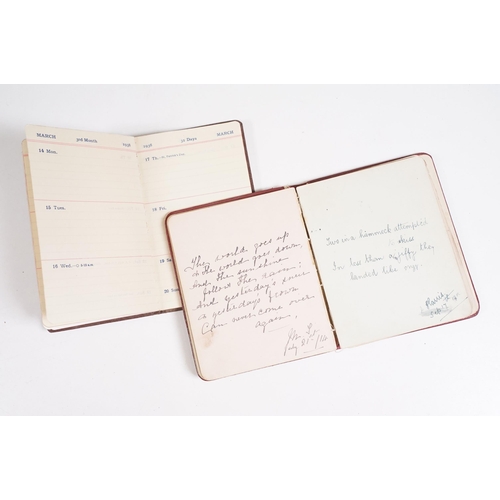 MARCH 3rd Month 1938
14 Mon.
15 Tues.
16 Wed.
1938 31 Days MARCH
17 Th.
18 Fri.
19 Sa
20 Su
The world goes up
& the world goes down,
And the sunshine
follows the rain:
And yesterday's sneer
& yesterday's frown
Can never come over
again.
July 21st/14
Two in a hammock attempted
to kiss
In less than a jiffy they
landed like